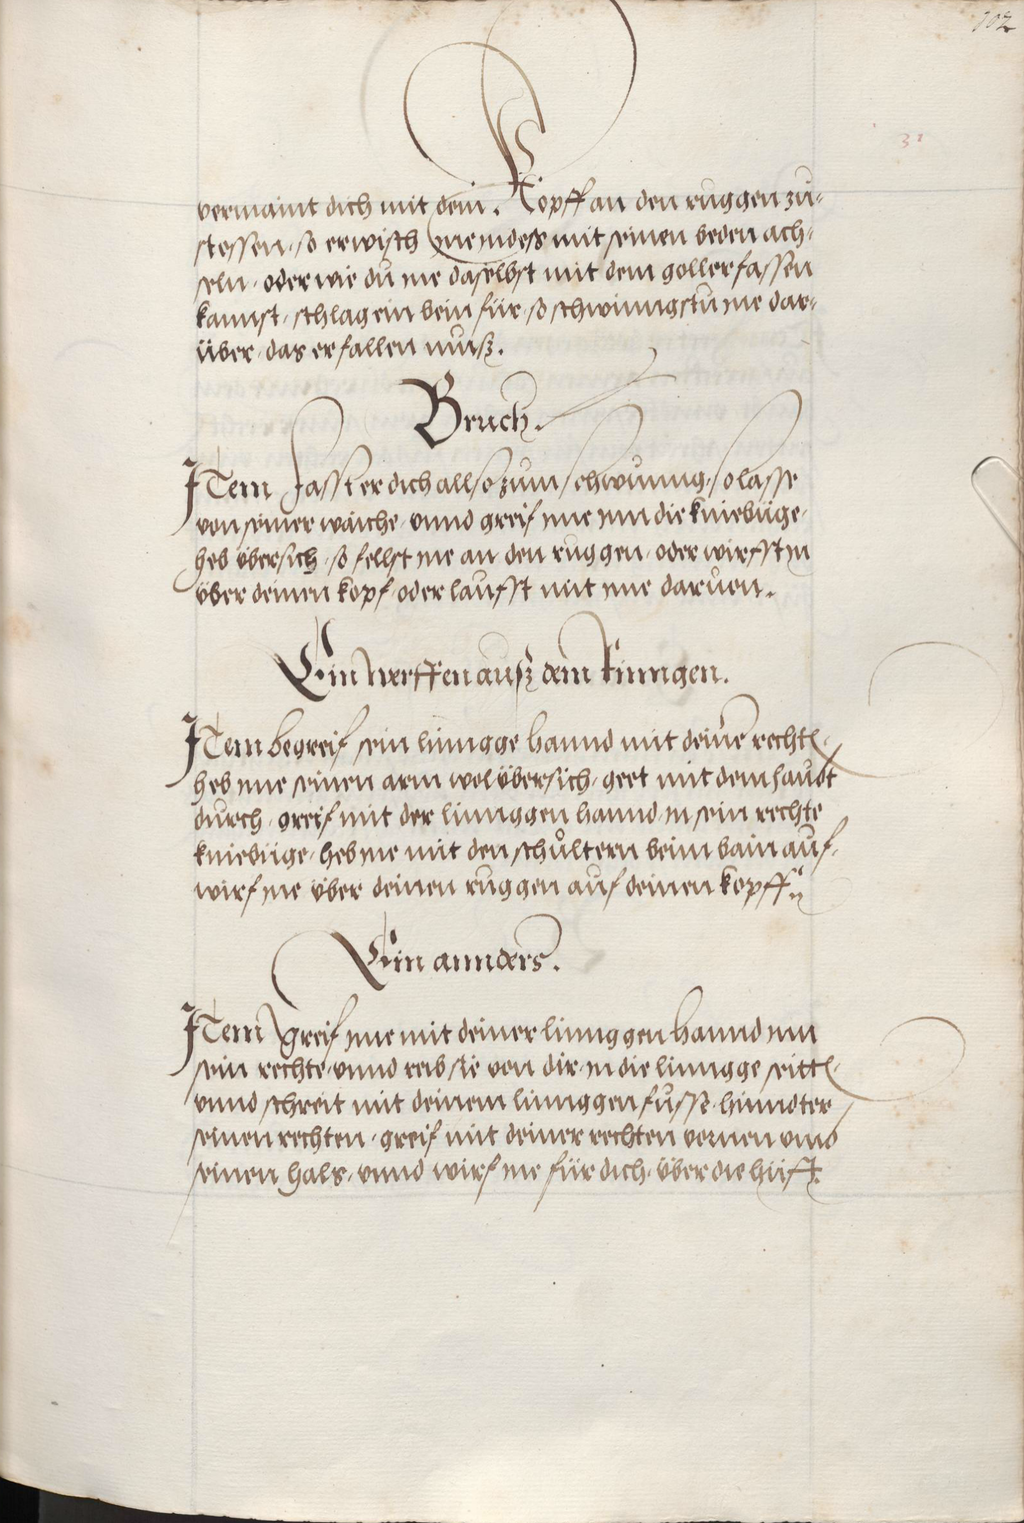 102
31
vermaint dich mit dem. Kopff an den ruggen zu-
stossen, so erwisch ine indess mit seinen beden ach-
seln, oder wie du ine daselbst mit dem goller fassen
kannst, schlag ein bein für, so schwinngstu ine dar-
über, das er fallen muß.
Bruch.
Item fasst er dich allso zum schwunng, so lasse
von seiner waiche, unnd greif ime inn die kniebüge,
heb übersich, so felst ine an den ruggen, oder wirfst in
über deinen kopf, oder laufst mit ime darvon.
Ein werffen auß dem Ringen.
Item begreif sein linngge hannd mit deiner rechten,
heb ime seinen arm wol übersich, geet mit dem haubt
durch, greif mit der linnggen hannd, in sein rechte
kniebüge, heb ine mit den schůltern beim bain auf,
wirf ine über deinen ruggen auf deinen kopff.
Ein annders.
Item greif ime mit deiner linnggen hannd inn
sein rechte, unnd reib sie von dir, in die linngge seitten,
unnd schreit mit deinem linnggen fuß, hinndter
seinen rechten, greif mit deiner rechten vornen umb
seinen hals, unnd wirf ine für dich, über die hüft.